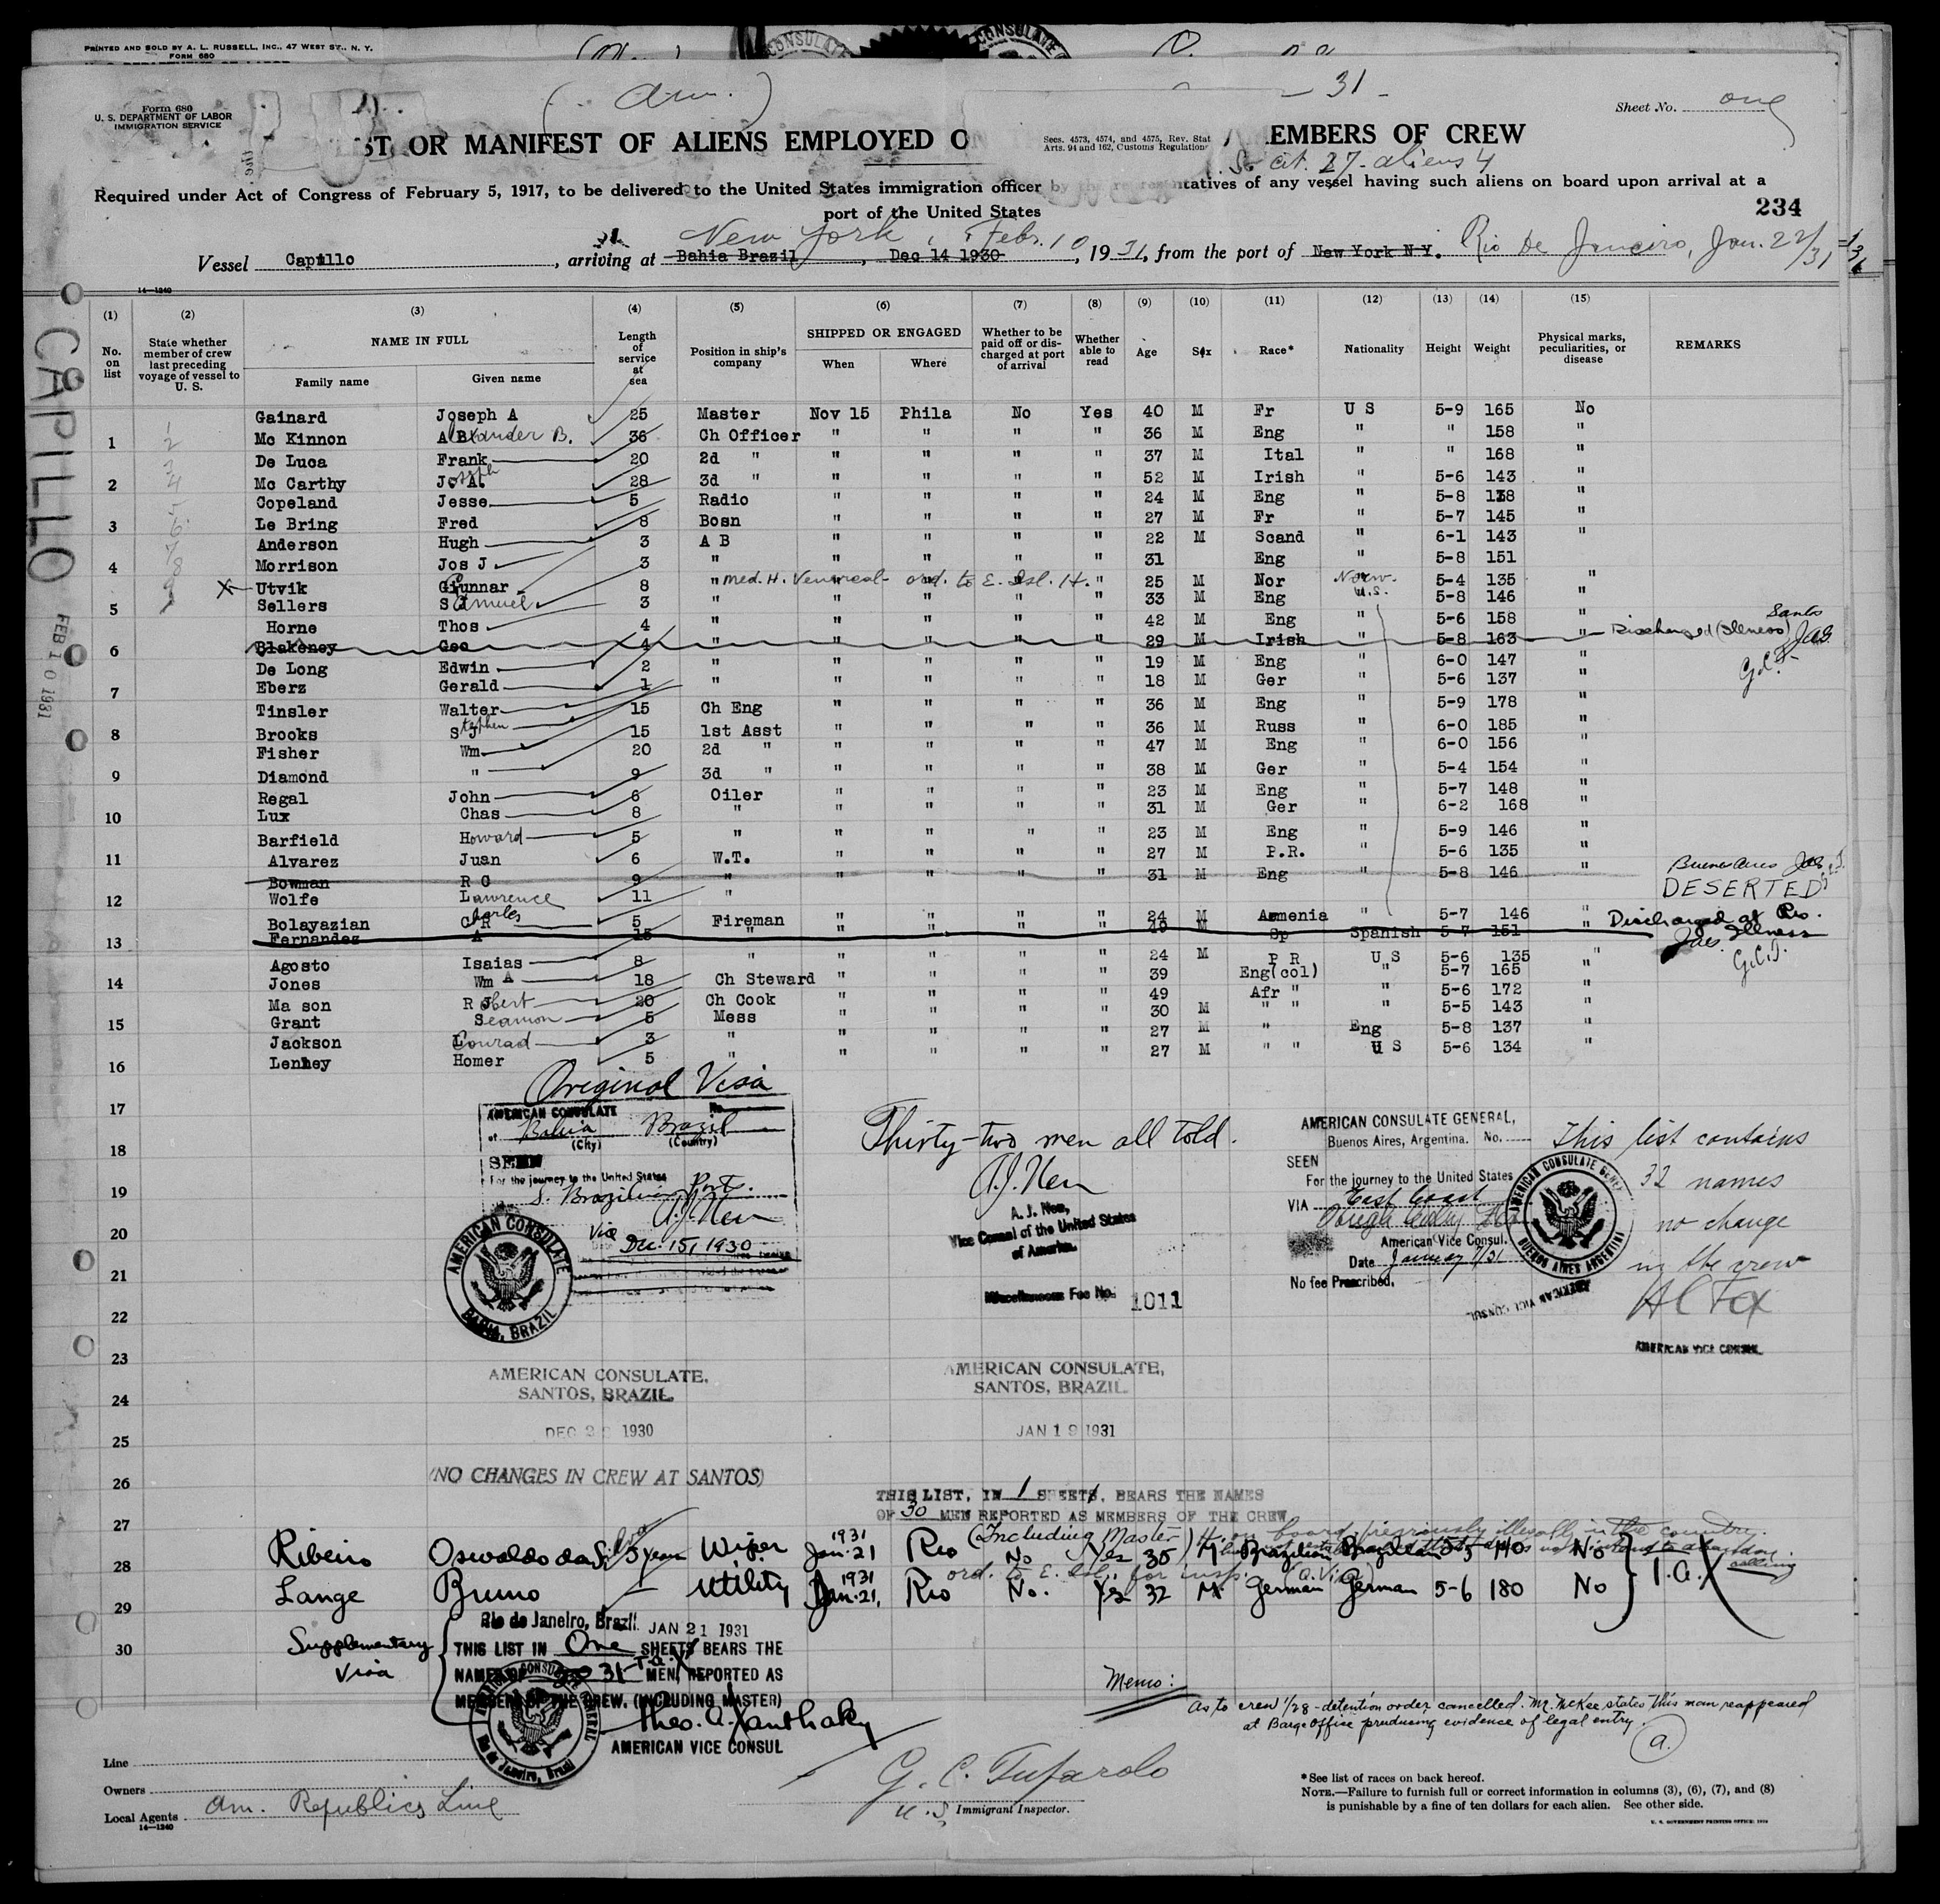 PRINTED AND SOLD BY A. L. RUSSELL, INC., 47 WEST ST., N. Y.
FORM 680
Form 680
U. S. DEPARTMENT OF LABOR
IMMIGRATION SERVICE
(Am.)
31
Sheet No. one
ST OR MANIFEST OF ALIENS EMPLOYED O
Secs. 4573, 4574, and 4575, Rev. Stat
Arts. 94 and 162, Customs Regulation
EMBERS OF CREW
27 - aliens 4
Required under Act of Congress of February 5, 1917, to be delivered to the United States immigration officer by the representatives of any vessel having such aliens on board upon arrival at a
port of the United States
234
New York, Febr. 10
Rio de Janeiro, Jan. 22/31
Vessel Capillo, arriving at Bahia Brazil, Dec 14 1930, 1931, from the port of New York N Y.
14-1240
(1) (2) (3) (4) (5) (6) (7) (8) (9) (10) (11) (12) (13) (14) (15)
No. on list
State whether member of crew last preceding voyage of vessel to U. S.
NAME IN FULL
Family name
Given name
Length of service at sea
Position in ship's company
SHIPPED OR ENGAGED
When
Where
Whether to be paid off or discharged at port of arrival
Whether able to read
Age
Sex
Race*
Nationality
Height
Weight
Physical marks, peculiarities, or disease
REMARKS
CAPILLO
FEB 10 1931
Gainard Joseph A 25 Master Nov 15 Phila No Yes 40 M Fr U S 5-9 165 No
1 Mc Kinnon Alexander B. 36 Ch Officer " " " " 36 M Eng " " 158 "
De Luca Frank 20 2d " " " " " 37 M Ital " " 168 "
2 Mc Carthy Joseph A. 28 3d " " " " " 52 M Irish " 5-6 143 "
Copeland Jesse 5 Radio " " " " 24 M Eng " 5-8 138 "
3 Le Bring Fred 8 Bosn " " " " 27 M Fr " 5-7 145 "
Anderson Hugh 3 A B " " " " 22 M Scand " 6-1 143 "
4 Morrison Jos J 3 " " " " " 31 Eng " 5-8 151
X Utvik Gunnar 8 " Med. H. Venereal - ord. to E. Isl. H. " 25 M Nor Norw. 5-4 135 "
5 Sellers Samuel 3 " " " " " 33 M Eng U.S. 5-8 146 "
Horne Thos 4 " " " " " 42 M Eng " 5-6 158 "
6 Blakeney Geo 4 " " " " " 29 M Irish " 5-8 163 " Discharged (Illness) Santos JaS. G.C.T.
De Long Edwin 2 " " " " " 19 M Eng " 6-0 147 "
7 Eberz Gerald 1 " " " " " 18 M Ger " 5-6 137 "
Tinsler Walter 15 Ch Eng " " " " 36 M Eng " 5-9 178 "
8 Brooks Stephen 15 1st Asst " " " " 36 M Russ " 6-0 185 "
Fisher Wm 20 2d " " " " " 47 M Eng " 6-0 156 "
9 Diamond " 9 3d " " " " " 38 M Ger " 5-4 154 "
Regal John 6 Oiler " " " " 23 M Eng " 5-7 148 "
10 Lux Chas 8 " " " " " 31 M Ger " 6-2 168 "
Barfield Howard 5 " " " " " 23 M Eng " 5-9 146 "
11 Alvarez Juan 6 W.T. " " " " 27 M P.R. " 5-6 135 "
Bowman R C 9 " " " " " 31 M Eng " 5-8 146 " Buenos Aires JaS. DESERTED
12 Wolfe Lawrence 11 "
Bolayazian Charles 5 Fireman " " " " 24 M Armenia " 5-7 146 "
13 Fernandez A 15 " " " " " 40 M Sp Spanish 5-7 151 " Discharged at Rio. Illness JaS. G.C.T.
Agosto Isaias 8 " " " " " 24 M P R U S 5-6 135 "
14 Jones Wm A 18 Ch Steward " " " " 39 Eng(col) " 5-7 165 "
Ma son Robert 20 Ch Cook " " " " 49 Afr " " 5-6 172 "
15 Grant Seamon 5 Mess " " " " 30 M " " " 5-5 143 "
Jackson Conrad 3 " " " " " 27 M " Eng 5-8 137 "
16 Lenhey Homer 5 " " " " " 27 M " " U S 5-6 134 "
17
18
19
20
21
22
23
24
25
26
27
28
29
30
Original Visa
AMERICAN CONSULATE No.
at Bahia Brazil
(City) (Country)
SEEN
For the journey to the United States
S. Brazilian Ports.
Via A.J. Nen
Date Dec. 15, 1930
AMERICAN CONSULATE BAHIA, BRAZIL
Thirty-two men all told.
A.J. Nen
Vice Consul of the United States
of America.
Miscellaneous Fee No. 1011
AMERICAN CONSULATE GENERAL,
Buenos Aires, Argentina. No.
SEEN
For the journey to the United States
VIA East Coast
American Vice Consul.
Date January 7/31
No fee Prescribed.
AMERICAN CONSULATE GENERAL BUENOS AIRES ARGENTINA
AMERICAN VICE CONSUL
This list contains
32 names
no change
in the crew
H C Fox
AMERICAN VICE CONSUL
AMERICAN CONSULATE,
SANTOS, BRAZIL
1930
(NO CHANGES IN CREW AT SANTOS)
AMERICAN CONSULATE,
SANTOS, BRAZIL
JAN 19 1931
THIS LIST, IN 1 SHEET, BEARS THE NAMES
OF 30 MEN REPORTED AS MEMBERS OF THE CREW
(Including Master)
on board, previously illegally in the country.
Ribeiro Oswaldo da Silva 3 year Wiper 1931 Jan. 21 Rio No Yes 35 M Brazilian Brazilian 5-5 140 No
ord. to E. Isl. for insp.
calling
Lange Bruno Utility 1931 Jan. 21, Rio No. Yes 32 M. German German 5-6 180 No
Rio de Janeiro, Brazil. JAN 21 1931
Supplementary Visa
THIS LIST IN One SHEETS BEARS THE
NAMES OF 31 MEN, REPORTED AS
MEMBERS OF THE CREW. (INCLUDING MASTER)
Theo. A. Xanthaky
AMERICAN VICE CONSUL
Memo:
As to crew 1/28 - detention order cancelled. Mr. McKee states this man reappeared
at Barge Office producing evidence of legal entry.
a.
Line
Owners
Local Agents Am. Republics Line
14-1240
G. C. Tufarolo
U. S. Immigrant Inspector.
*See list of races on back hereof.
NOTE.—Failure to furnish full or correct information in columns (3), (6), (7), and (8)
is punishable by a fine of ten dollars for each alien. See other side.
U. S. GOVERNMENT PRINTING OFFICE: 1930